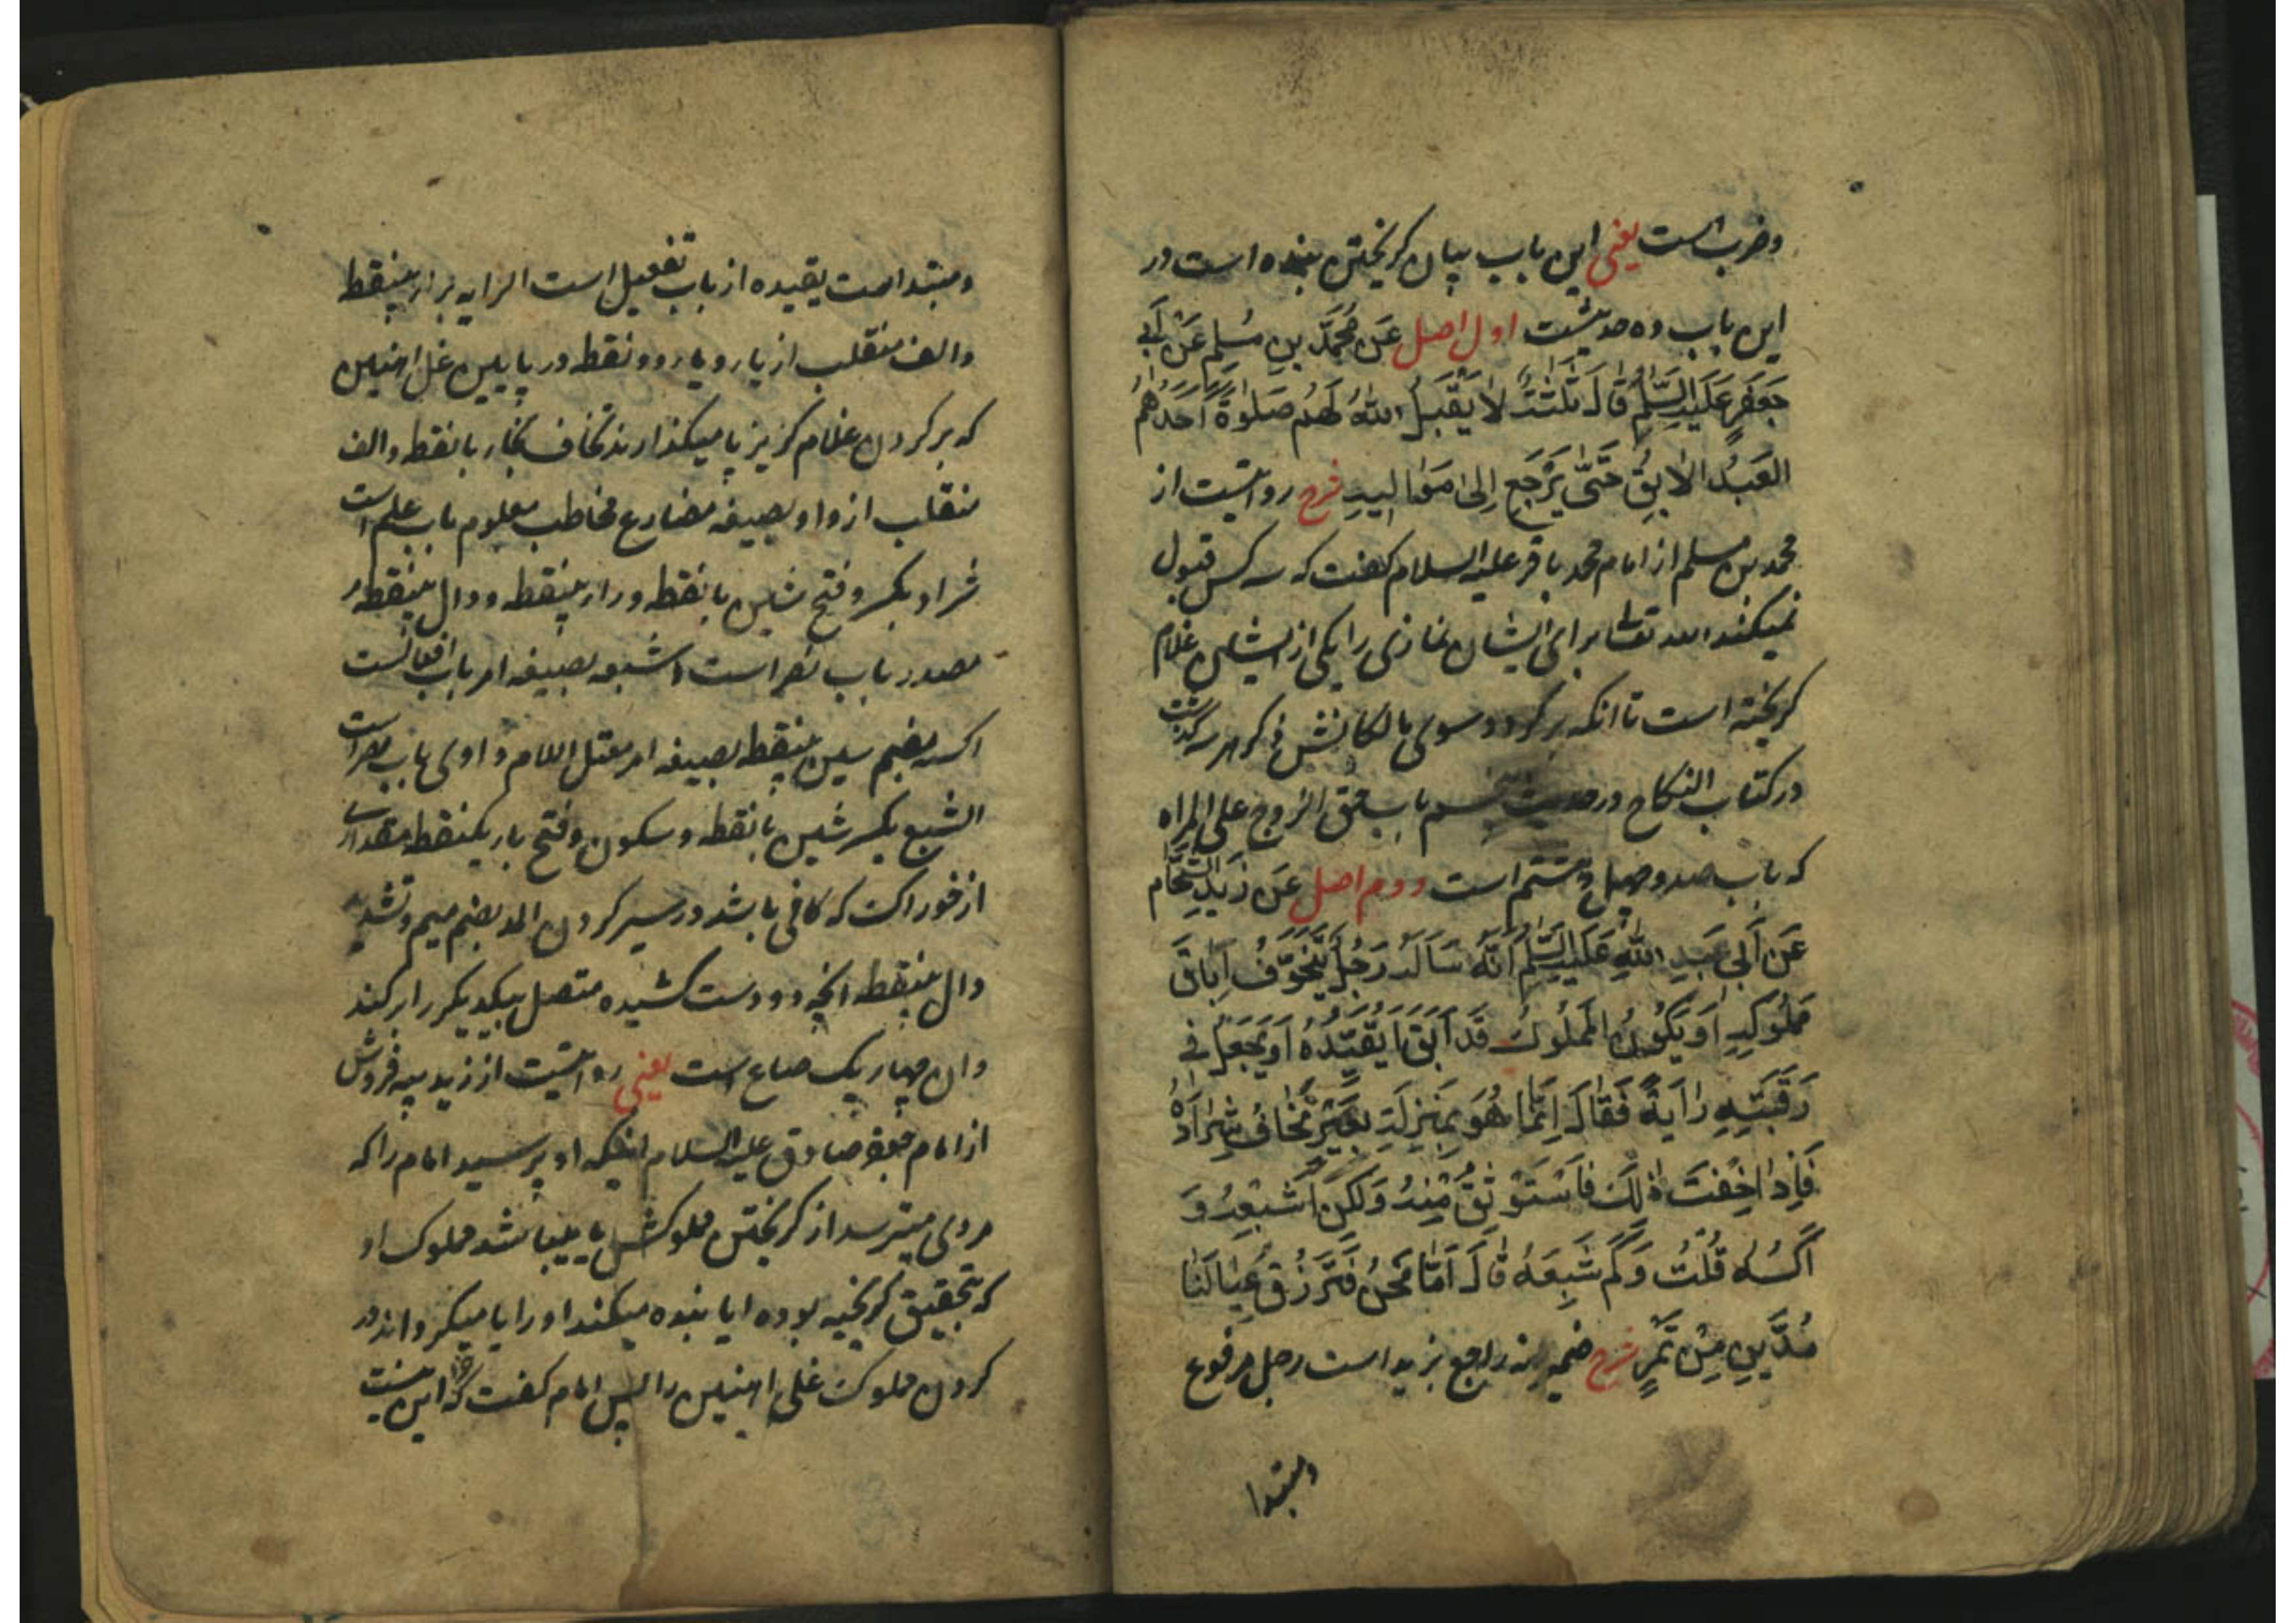 وضرب است یعنی این باب بیان کریختن بنده است در
این باب ده حدیثست اول اصل عَن مُحَمَّدِ بنِ مُسلِمٍ عَن أَبی
جَعفَرٍ عَلَیهِ السَّلٰمُ قَالَ ثَلٰثَةٌ لا یَقبَلُ اللهُ لَهُم صَلٰوةً أَحَدُهُم
العَبدُ الآبِقُ حَتّٰی یَرجِعَ إِلی مَوالیهِ شرح روایتست از
محمد بن مسلم از امام محمد باقر علیه السلام کفت که سه کس قبول
نمیکند الله تعالی برای ایشان نمازی را یکی از ایشان غلام
کریخته است تا انکه برکردد سوی مالکانش ذکر هر سه کذشت
در کتاب النکاح در حدیث باب حق الزوج علی المراه
که باب صد و چهل و هشتم است دوم اصل عَن زَیدِ الشَّحّام
عَن أَبی عَبدِ اللهِ عَلَیهِ السَّلٰمُ أَنَّهُ سَأَلَهُ رَجُلٌ یَتَخَوَّفُ اِبَاقَ
مَملُوکِهِ اَو یَکُونُ المَملُوکُ قَد اَبَقَ اَیُقَیِّدُهُ اَو یَجعَلُ فی
رَقَبَتِهِ رٰایَةً فَقَالَ اِنَّمَا هُوَ بِمَنزِلَةِ بَعیرٍ تَخَافُ شِرٰادَهُ
فَاِذٰا خِفتَ ذٰلِکَ فَاستَوثِق مِنهُ وَلٰکِن اَشبِعهُ وَ
اکسُهُ قُلتُ وَکَم شِبَعُهُ قَالَ اَمّا نَحنُ فَنَرزُقُ عِیٰالَنٰا
مُدَّینِ مِن تَمرٍ شرح ضمیر انه راجع بزید است رجل مرفوع
ومبتدا
ومبتدا است یقیده از باب تفعیل است الرایه برار بینقطه
والف منقلب از یار و یار دو نقطه در پایین غل اهنین
که بر کردن غلام کریز پا میکذارند تخاف بخار بانقطه والف
منقلب از واو بصیغه مضارع مخاطب معلوم باب علم است
شراد بکسر و فتح شین بانقطه ورار بینقطه ودال بینقطه
مصدر باب نصر است اشبعه بصیغه امر باب افعالست
اکسه بضم سین بینقطه بصیغه امر معتل اللام واوی باب نصر است
الشبع بکسر شین بانقطه وسکون وفتح بار یکنقطه مقداری
از خوراکست که کافی باشد در سیر کردن المد بضم میم وتشدید
دال بینقطه انچه دو دست کشیده متصل بیکدیکر را پر کند
وان چهار یک صاع است یعنی روایتست از زید پیه فروش
از امام جعفر صادق علیه السلام اینکه او پرسید امام را که
مردی میترسد از کریختن مملوکش یا میباشد مملوک او
که بتحقیق کریخته بوده ایا بنده میکند او را یا میکرداند در
کردن مملوک غلی اهنین را پس امام کفت که این نیست